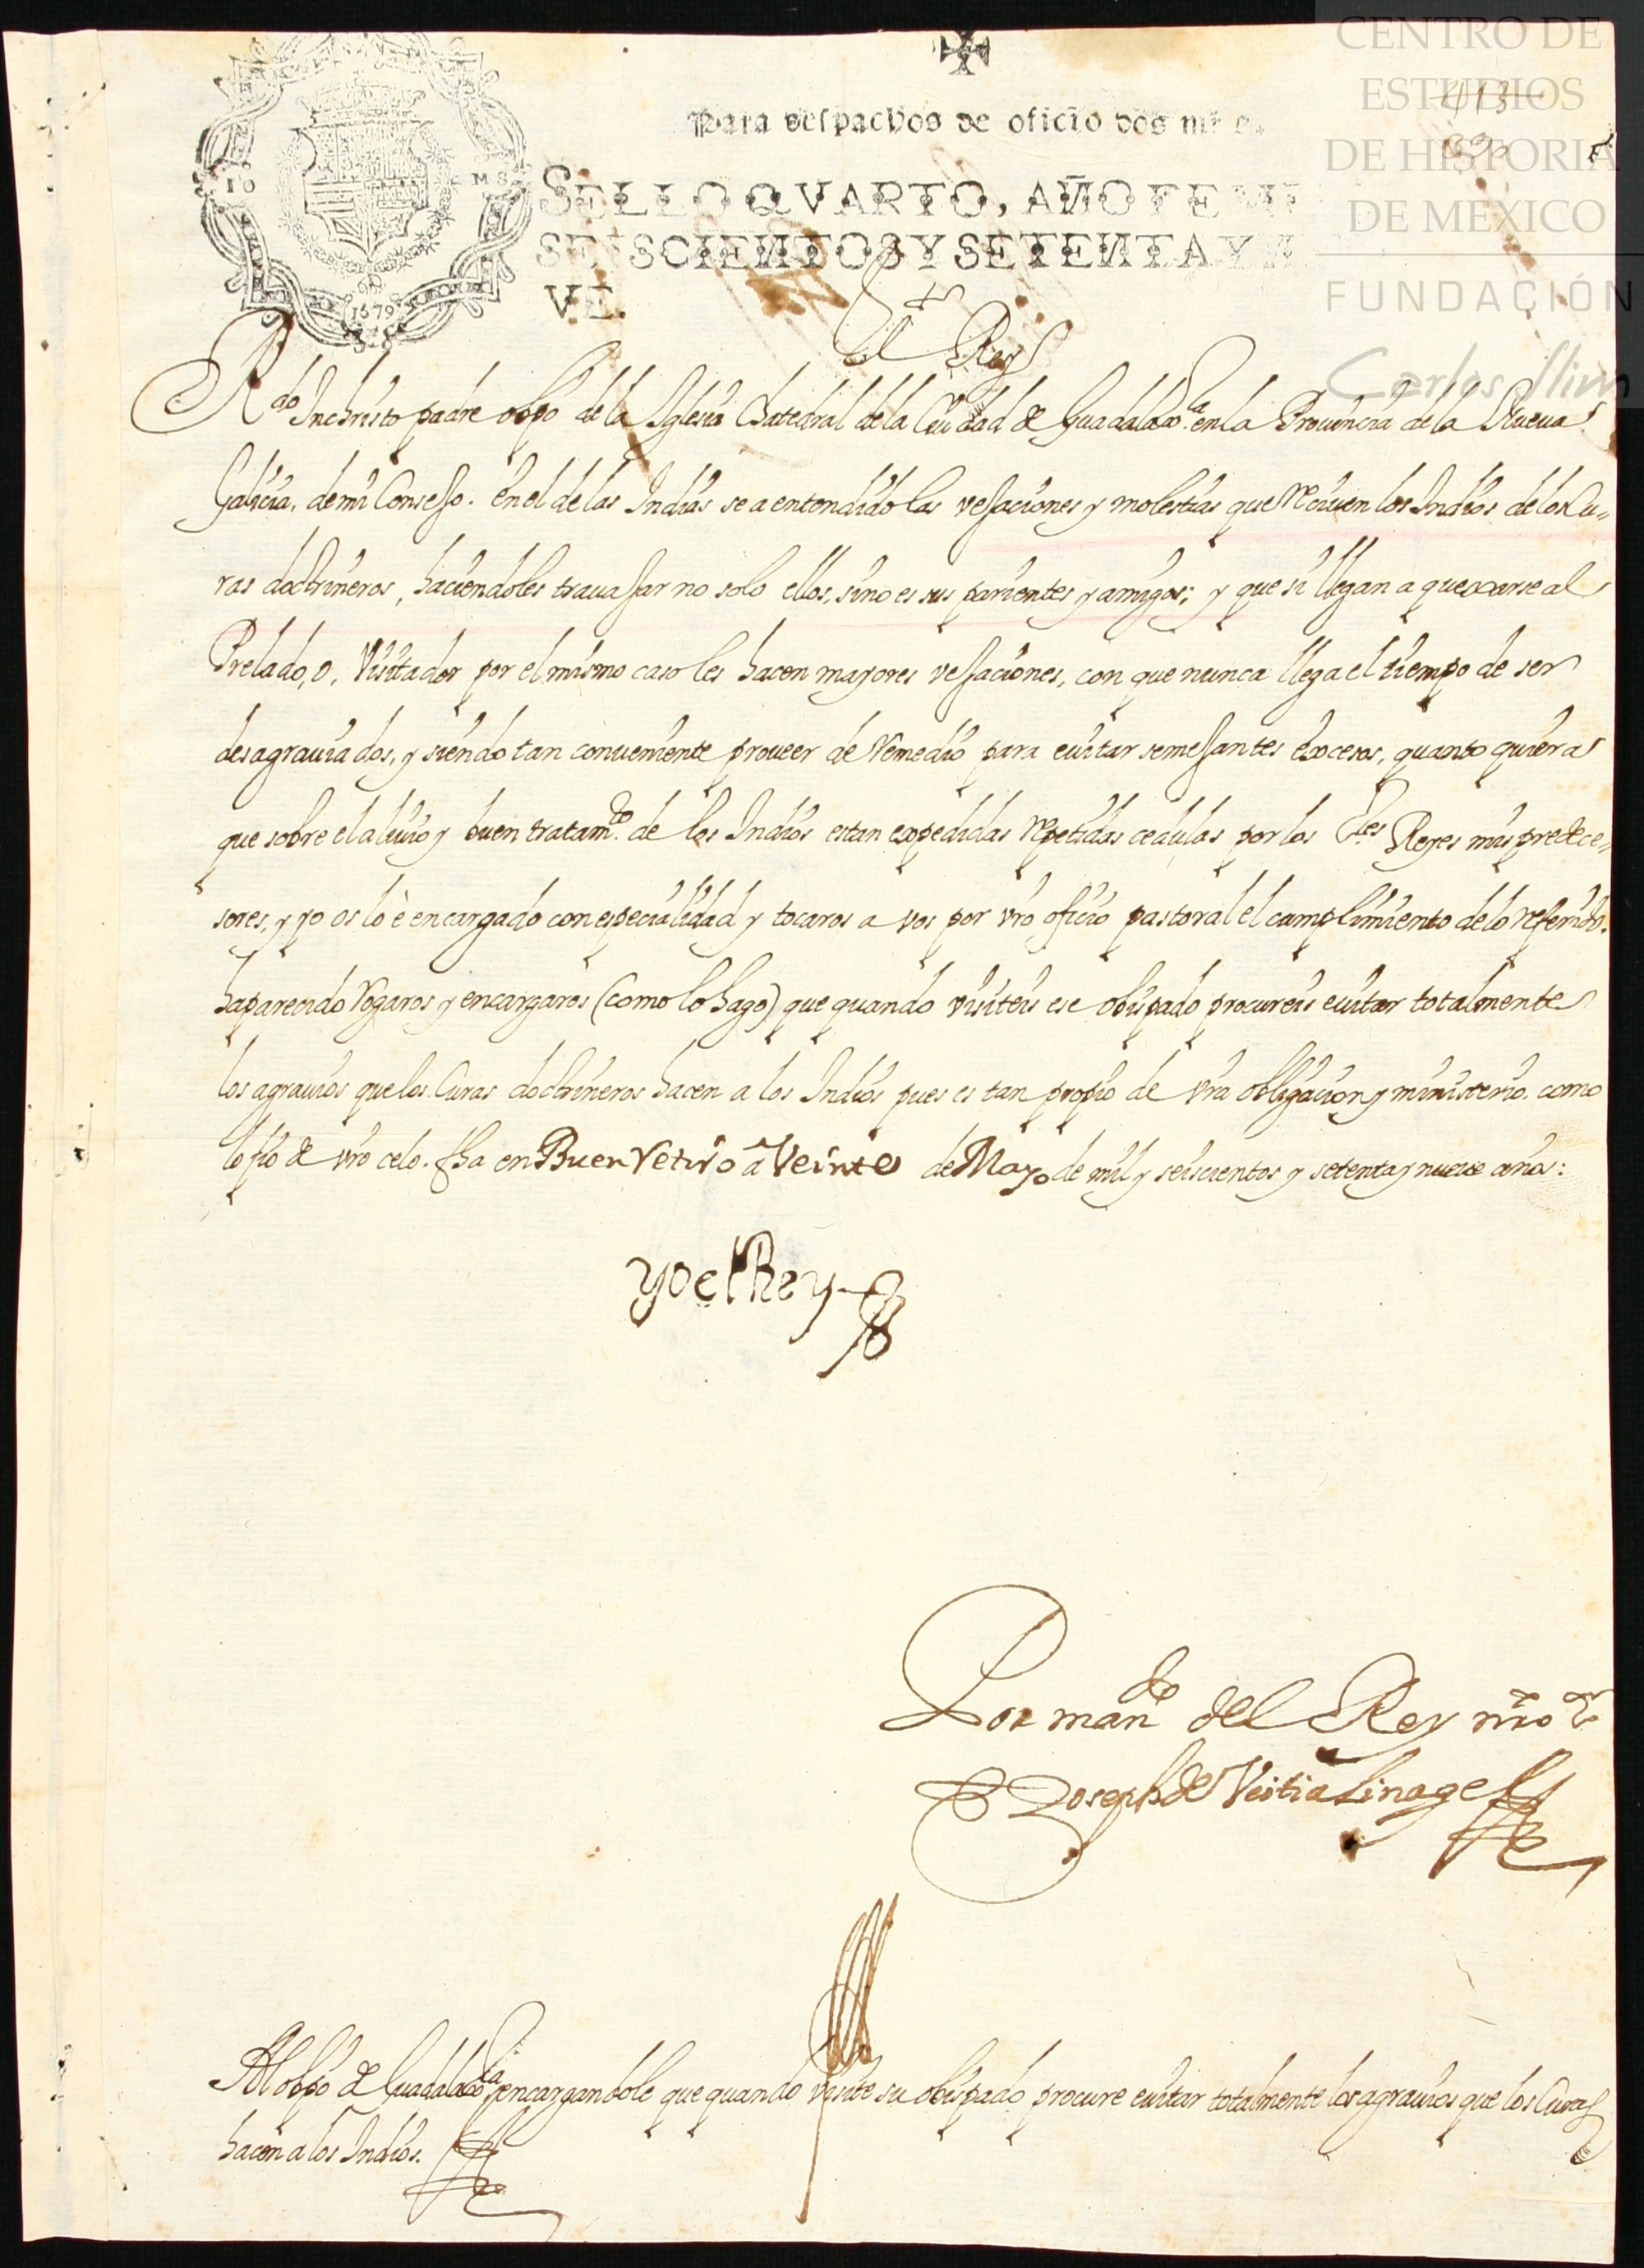 CENTRO DE
ESTUDIOS
DE HISTORIA
DE MÉXICO
FUNDACIÓN
Carlos Slim
413
Para despachos de oficio dos mrs.
IO MS
1679
SELLO QVARTO, AÑO DE MIL
SEISCIENTOS Y SETENTA Y N
VE.
El Rey
Rdo Inchristo padre obpo de la Iglesia Chatedral de la Ciudad de Guadalaxra en la Prouincia de la Nueua
Galicia, de mi Consejo. en el de las Indias se a entendido las vejaciones y molestias que Reciuen los Indios de los Cu-
ras doctrineros, haciendoles trauajar no solo ellos, sino es sus parientes y amigos; y que si llegan a quexarse al
Prelado, o, Visitador por el mismo caso les hacen mayores vejaciones, con que nunca llega el tiempo de ser
desagrauiados, y siendo tan conueniente proueer de Remedio para euitar semejantes excesos, quanto quiera
que sobre el aliuio y buen tratamto de los Indios estan expedidas Repetidas cedulas por los Sres Reyes mis predece-
sores, y yo os lo è encargado con especialidad y tocaros a vos por vro oficio pastoral el cumplimiento de lo referido.
ha parecido Rogaros y encargaros (como lo hago) que quando visiteis ese obispado procureis euitar totalmente
los agrauios que los Curas doctrineros hacen a los Indios pues es tan propio de vra obligacion y ministerio. como
lo fio de vro celo. fha en Buen Retiro a Veinte de Mayo de mil y seiscientos y setenta y nueue años:
Yo el Rey
Por mando del Rey nro sr
D Joseph de Veitia Linage
Al obpo de Guadalaxra encargandole que quando visite su obispado procure euitar totalmente los agrauios que los Curas
hacen a los Indios.